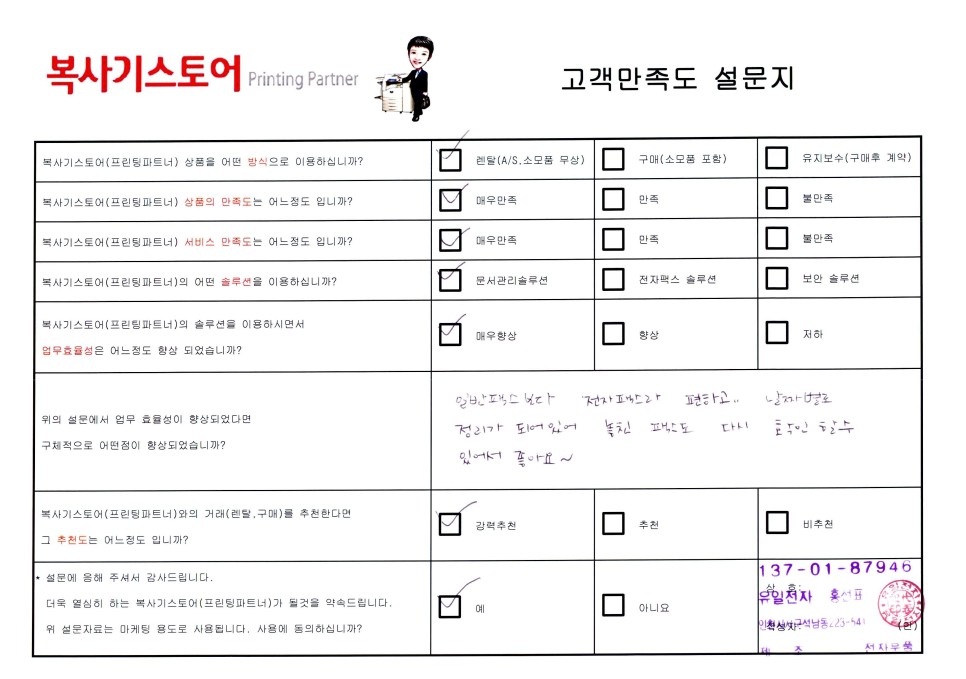 복사기스토어 Printing Partner
고객만족도 설문지
복사기스토어(프린팅파트너) 상품을 어떤 방식으로 이용하십니까?
렌탈(A/S.소모품 무상)
구매(소모품 포함)
유지보수(구매후 계약)
복사기스토어(프린팅파트너) 상품의 만족도는 어느정도 입니까?
매우만족
만족
불만족
복사기스토어(프린팅파트너) 서비스 만족도는 어느정도 입니까?
매우만족
만족
불만족
복사기스토어(프린팅파트너)의 어떤 솔루션을 이용하십니까?
문서관리솔루션
전자팩스 솔루션
보안 솔루션
복사기스토어(프린팅파트너)의 솔루션을 이용하시면서
업무효율성은 어느정도 향상 되었습니까?
매우향상
향상
저하
위의 설문에서 업무 효율성이 향상되었다면
구체적으로 어떤점이 향상되었습니까?
일반팩스보다 전자팩스라 편하고.. 날짜별로
정리가 되어있어 놓친 팩스도 다시 확인 할수
있어서 좋아요~
복사기스토어(프린팅파트너)와의 거래(렌탈,구매)를 추천한다면
그 추천도는 어느정도 입니까?
강력추천
추천
비추천
* 설문에 응해 주셔서 감사드립니다.
더욱 열심히 하는 복사기스토어(프린팅파트너)가 될것을 약속드립니다.
위 설문자료는 마케팅 용도로 사용됩니다. 사용에 동의하십니까?
예
아니요
137-01-87946
상 호:
유일전자 홍선표
작성자: (인)
제 조